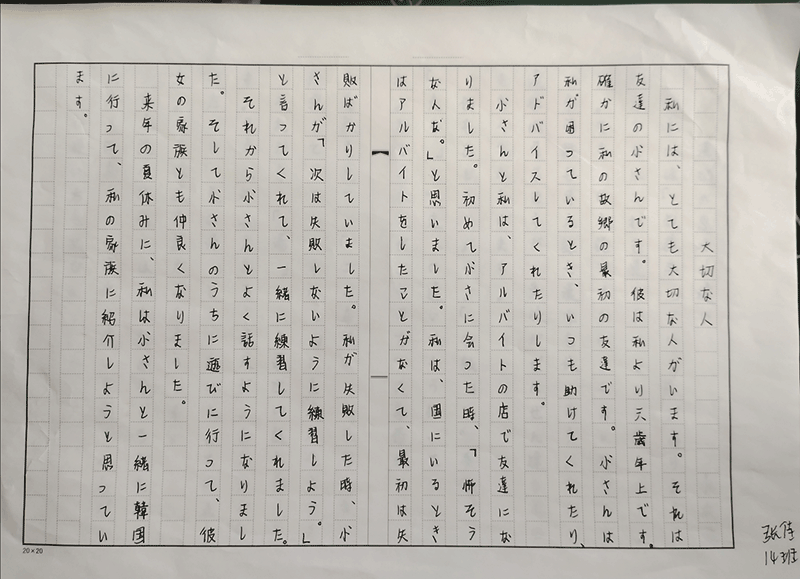 大切な人
私には、とても大切な人がいます。それは
友達の小さんです。彼は私より三歳年上です。
確かに私の故郷の最初の友達です。小さんは
私が困っているとき、いつも助けてくれたり、
アドバイスしてくれたりします。
小さんと私は、アルバイトの店で友達にな
りました。初めて小さに会った時、「怖そう
な人な。」と思いました。私は、国にいるとき
はアルバイトをしたことがなくて、最初は失
敗ばかりしていました。私が失敗した時、小
さんが「次は失敗しないように練習しよう。」
と言ってくれて、一緒に練習してくれました。
それから小さんとよく話すようになりまし
た。そして小さんのうちに遊びに行って、彼
女の家族とも仲良くなりました。
来年の夏休みに、私は小さんと一緒に韓国
に行って、私の家族に紹介しようと思ってい
ます。
20×20
14班